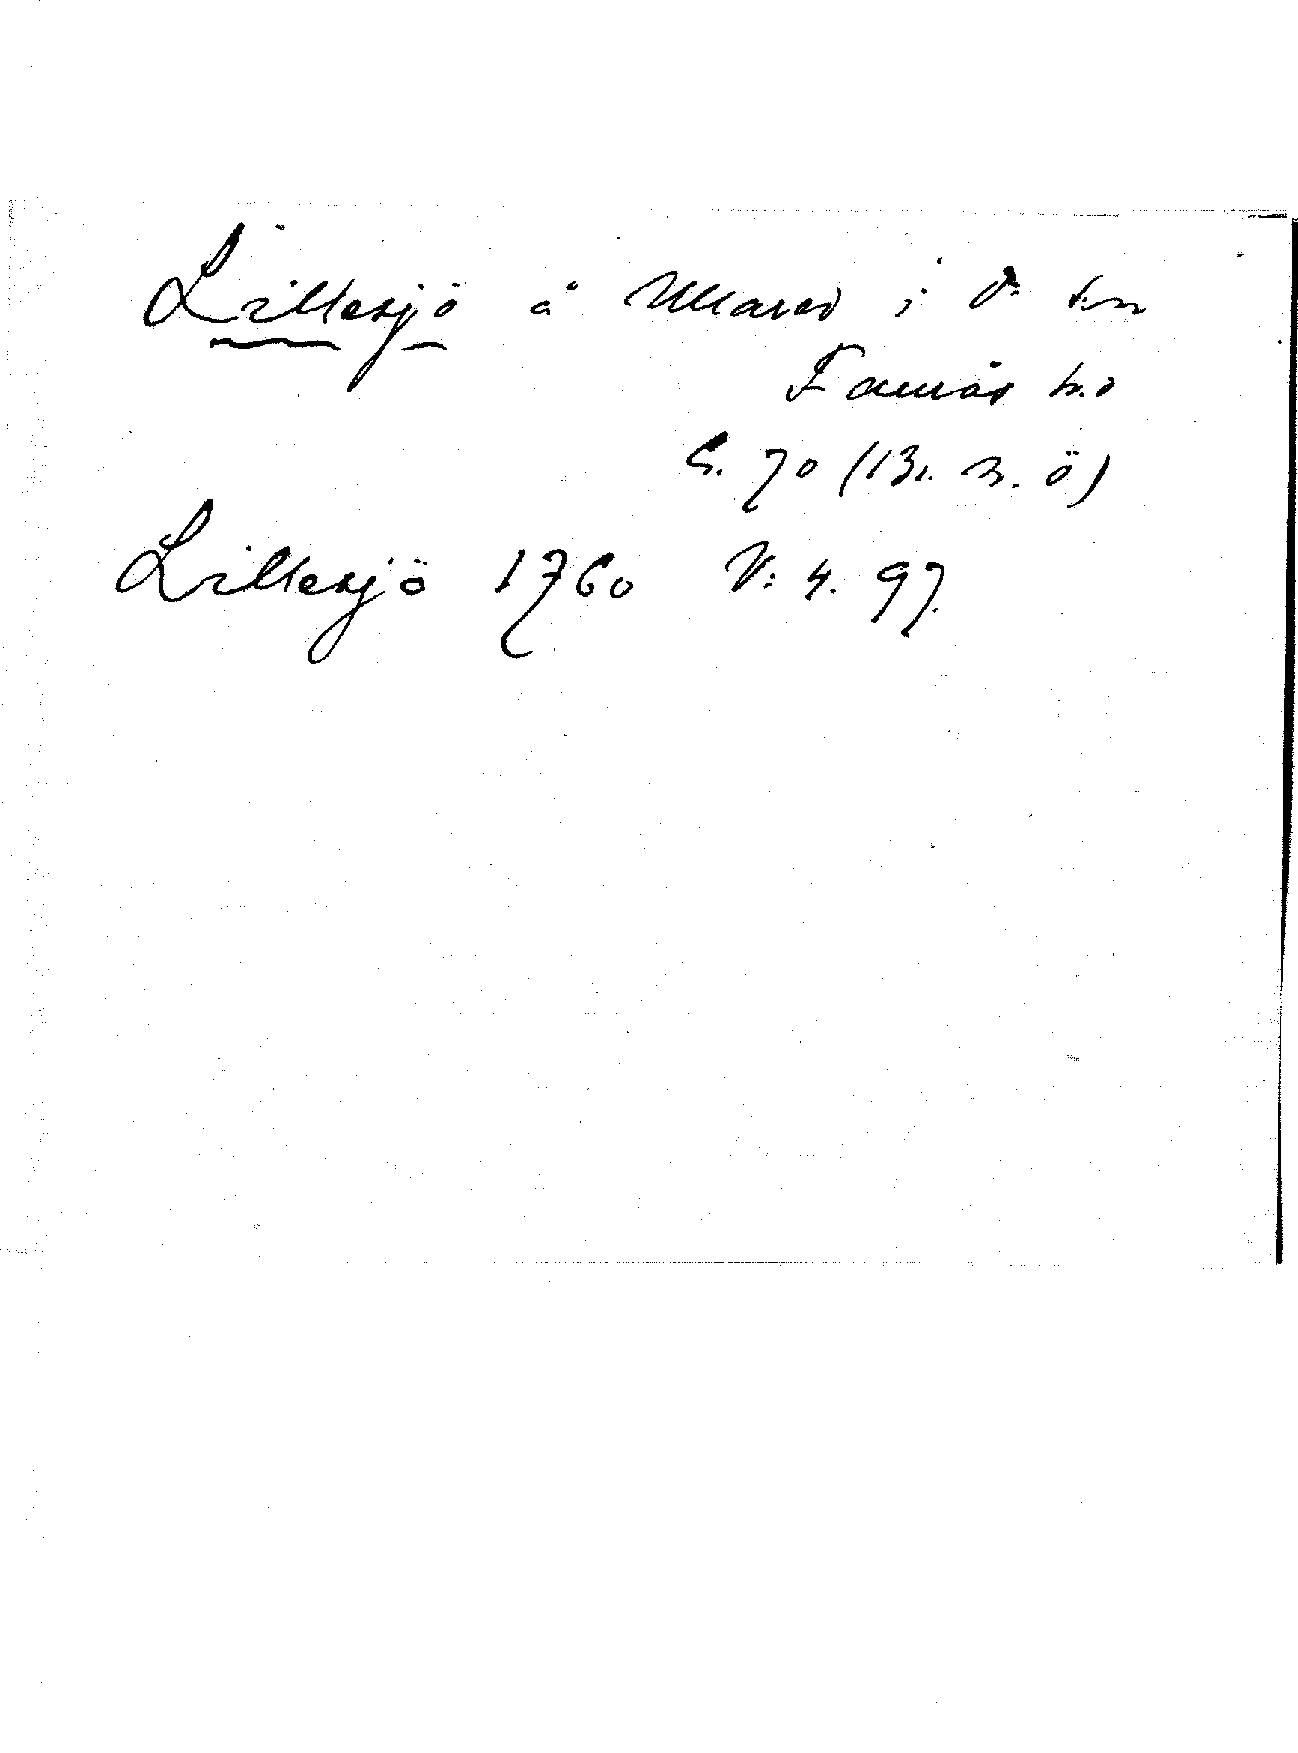 Lillesjö å Ullared i d:o sn
Faurås hd
G. 70 (Bl. 3. ö)
Lillesjö 1760 V: 4. 97.